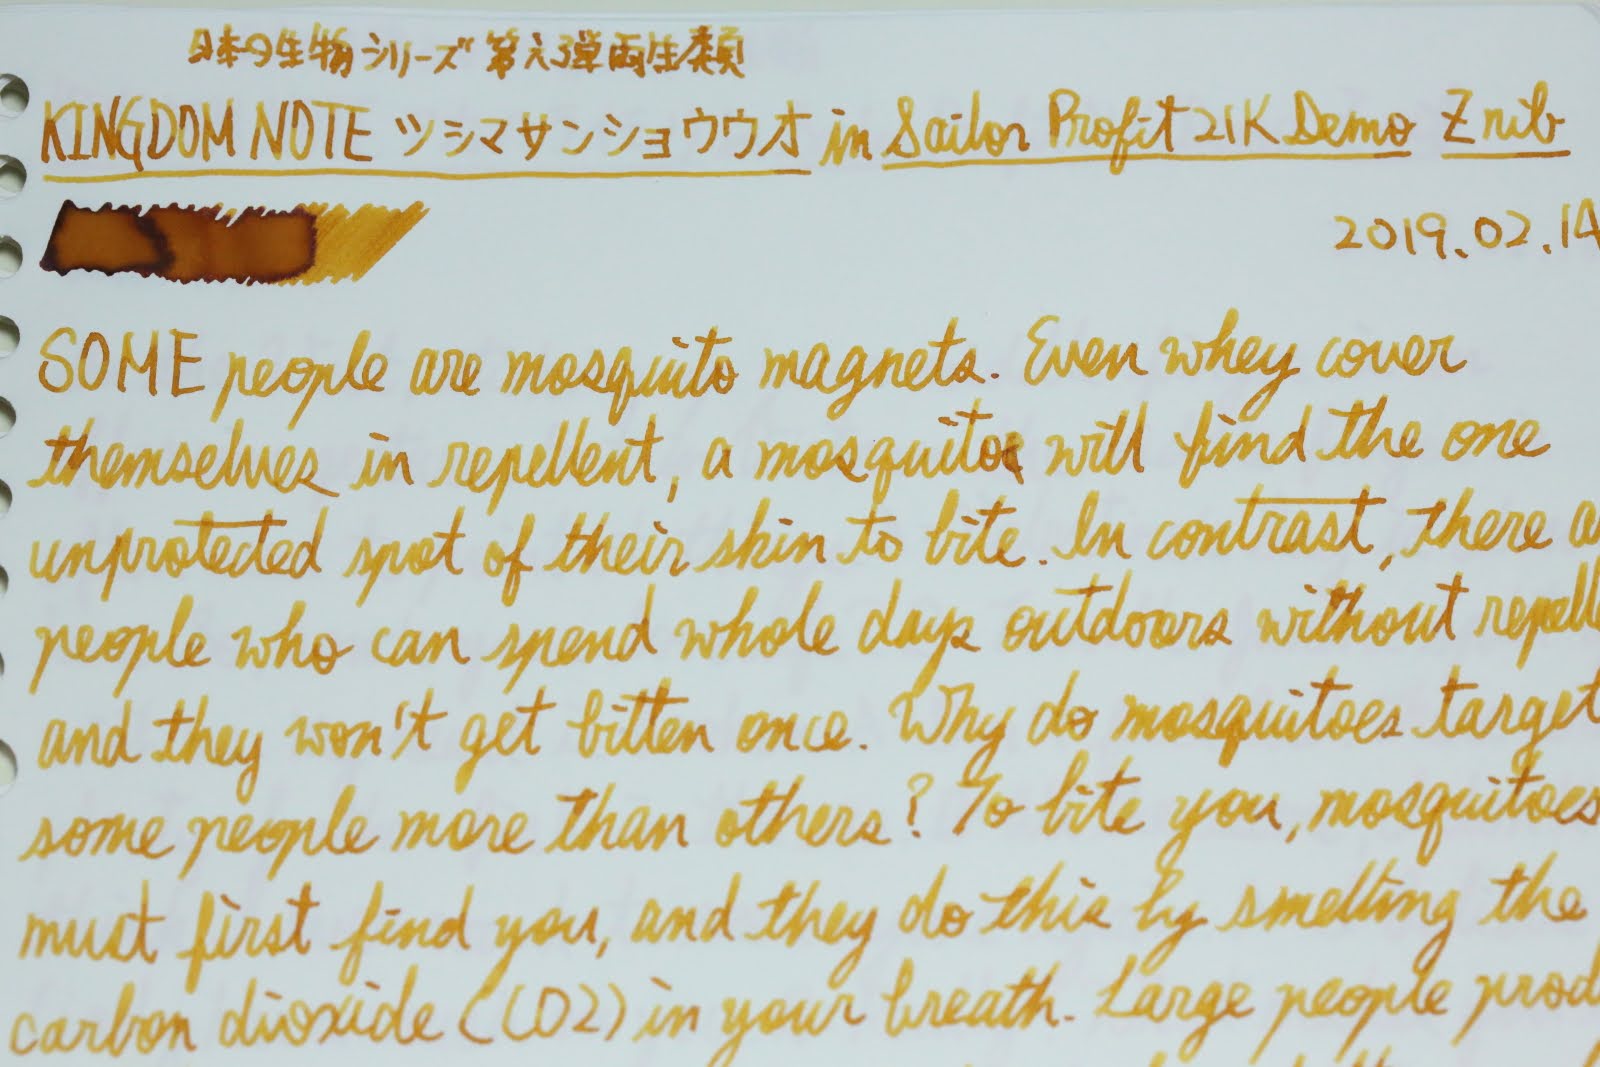 日本の生物シリーズ 第え弾両生類
KINGDOM NOTE ツシマサンショウウオ in Sailor Profit 21K Demo Z nib
2019.02.14
SOME people are mosquito magnets. Even whey cover
themselves in repellent, a mosquito will find the one
unprotected spot of their skin to bite. In contrast, there a
people who can spend whole days outdoors without repell
and they won't get bitten once. Why do mosquitoes target
some people more than others? To bite you, mosquitoes
must first find you, and they do this by smelling the
carbon dioxide (CO2) in your breath. Large people prod